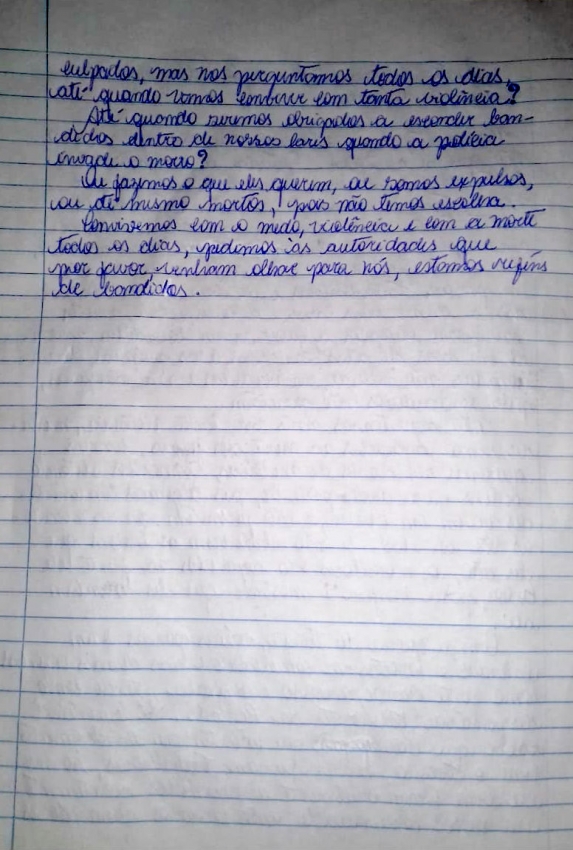 culpados, mas nos perguntamos todos os dias,
até quando vamos conviver com tanta violência?
Até quando seremos obrigados a esconder ban-
didos dentro de nossos lares quando a polícia
invade o morro?
Ou fazemos o que eles querem, ou somos expulsos,
ou até mesmo mortos, pois não temos escolha.
Convivemos com o medo, violência e com a morte
todos os dias, pedimos às autoridades que
por favor, venham olhar para nós, estamos reféns
de bandidos.